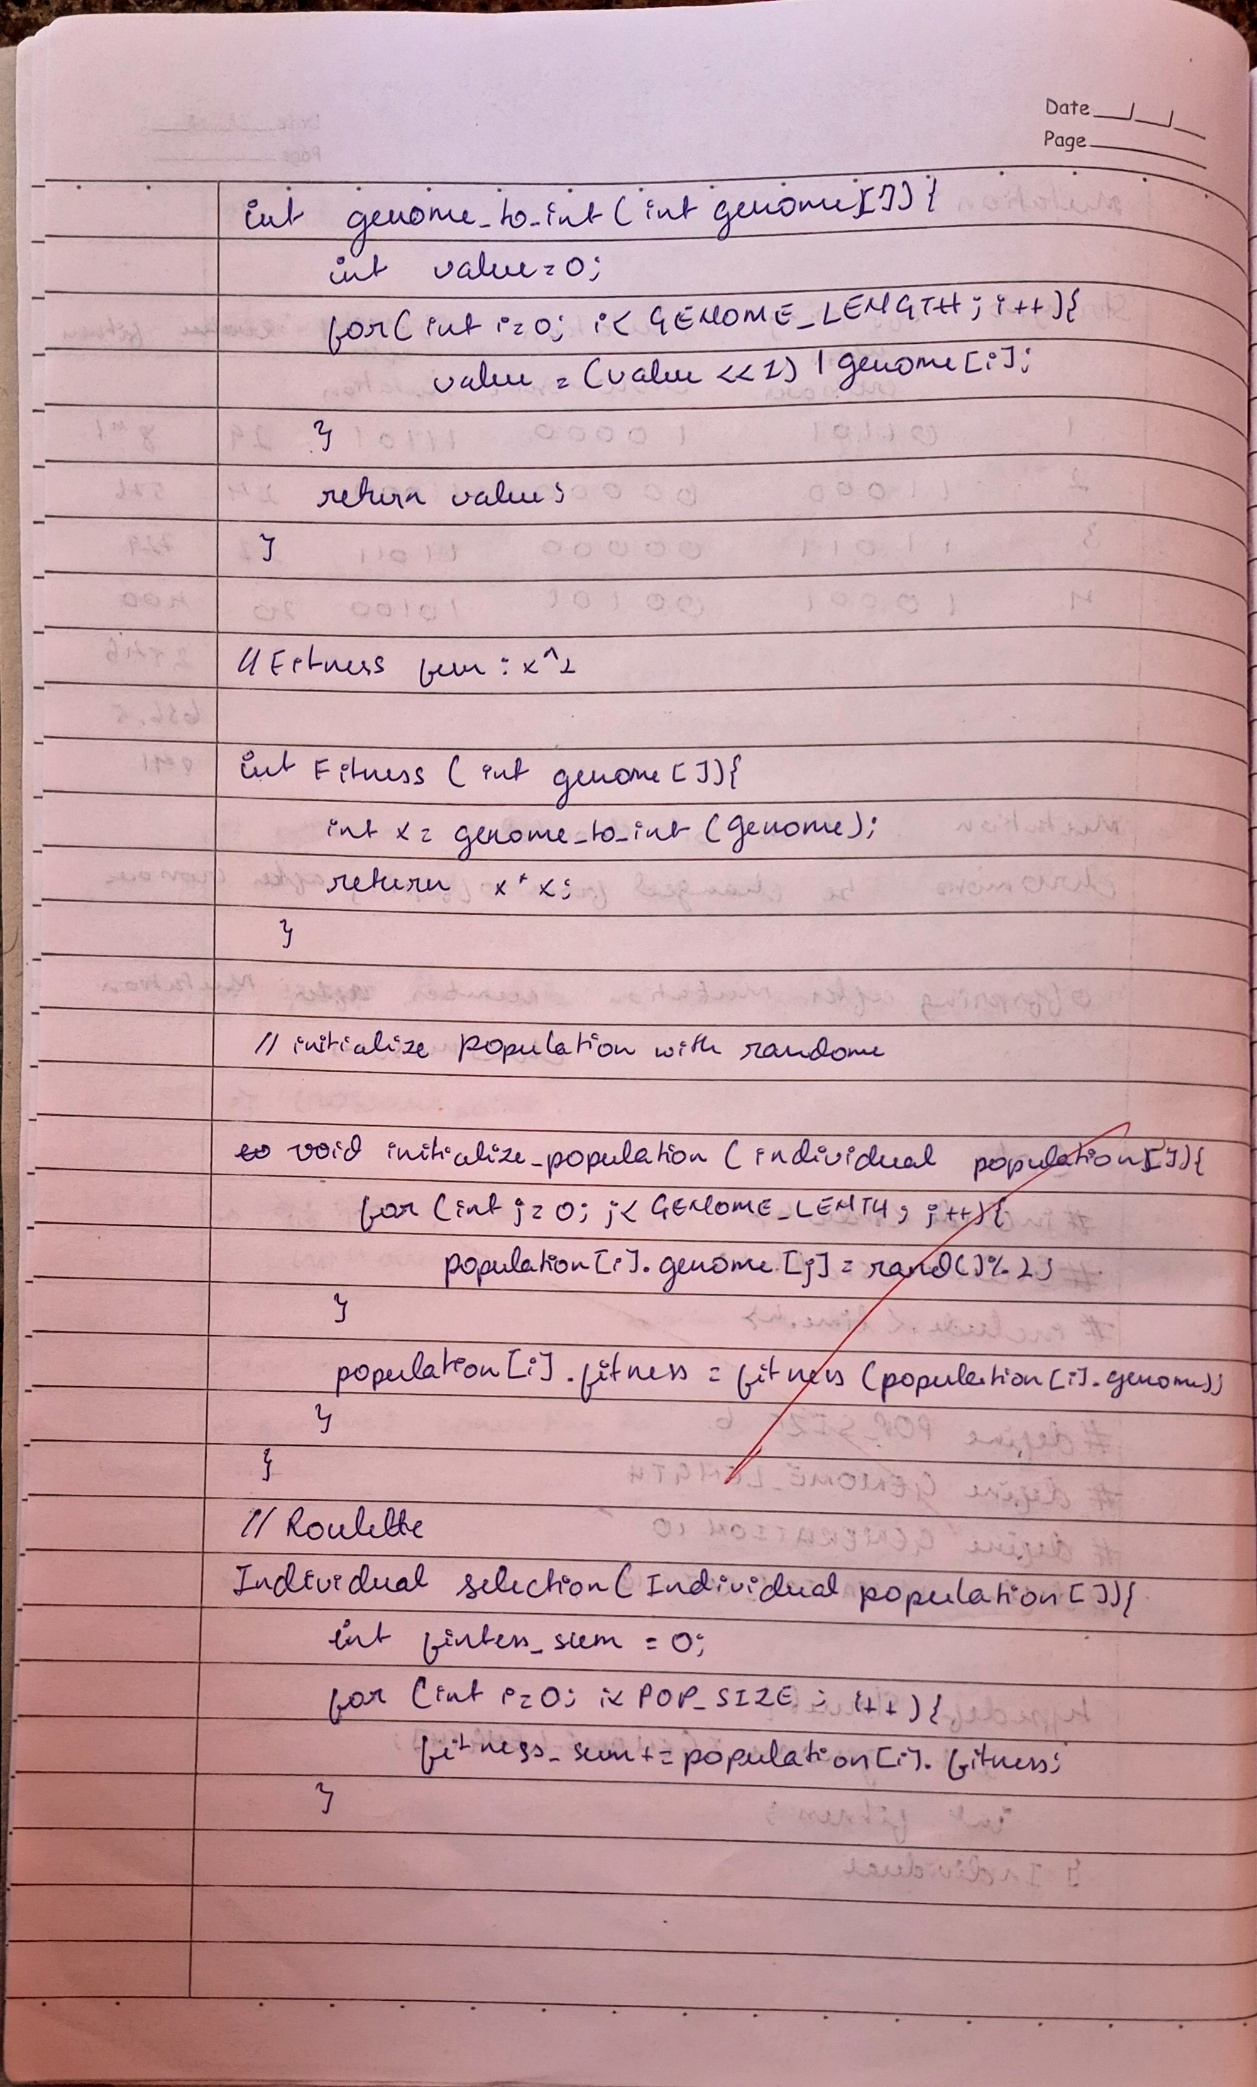 Date __/__/__
Page
int genome_to_int ( int genome[]) {
int value = 0;
for( int i=0; i< GENOME_LENGTH; i++){
value = (value <<1) | genome[i];
}
return value;
}
// Fitness fun : x^2
int Fitness ( int genome [ ]){
int x = genome_to_int (genome);
return x * x;
}
// initialize population with randome
void initialize_population ( individual population[]){
for (int j=0; j< GENOME_LENTH; j++){
population[i]. genome [j] = rand()%2;
}
population[i] . fitness = fitness (population[i].genome);
}
}
// Roulette
Individual selection( Individual population[ ]){
int fintess_sum = 0;
for (int i=0; i< POP_SIZE ; i++){
fitness_sum += population[i]. fitness;
}